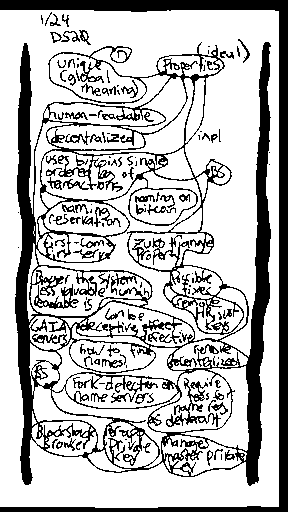 1/24
DS2Q
(ideal)
①
Properties
unique
(global
meaning)
human-readable
decentralized
impl
uses bitcoins single
ordered log of
transactions
BS
naming on
bitcoin
naming
reservation
first-come
first-serve
Zuko triangle
Property
Bigger the system,
less valuable human
readable is
Possible
fixes
remove
HR, just
keys
GAIA
servers
can be
deceptive,
defective
how to find
names?
remove
decentralized
BS
Fork-detection on
name servers
Require
fees for
name reg
as deterrent
Blockstack
Browser
Private
Key
manages
master private
key